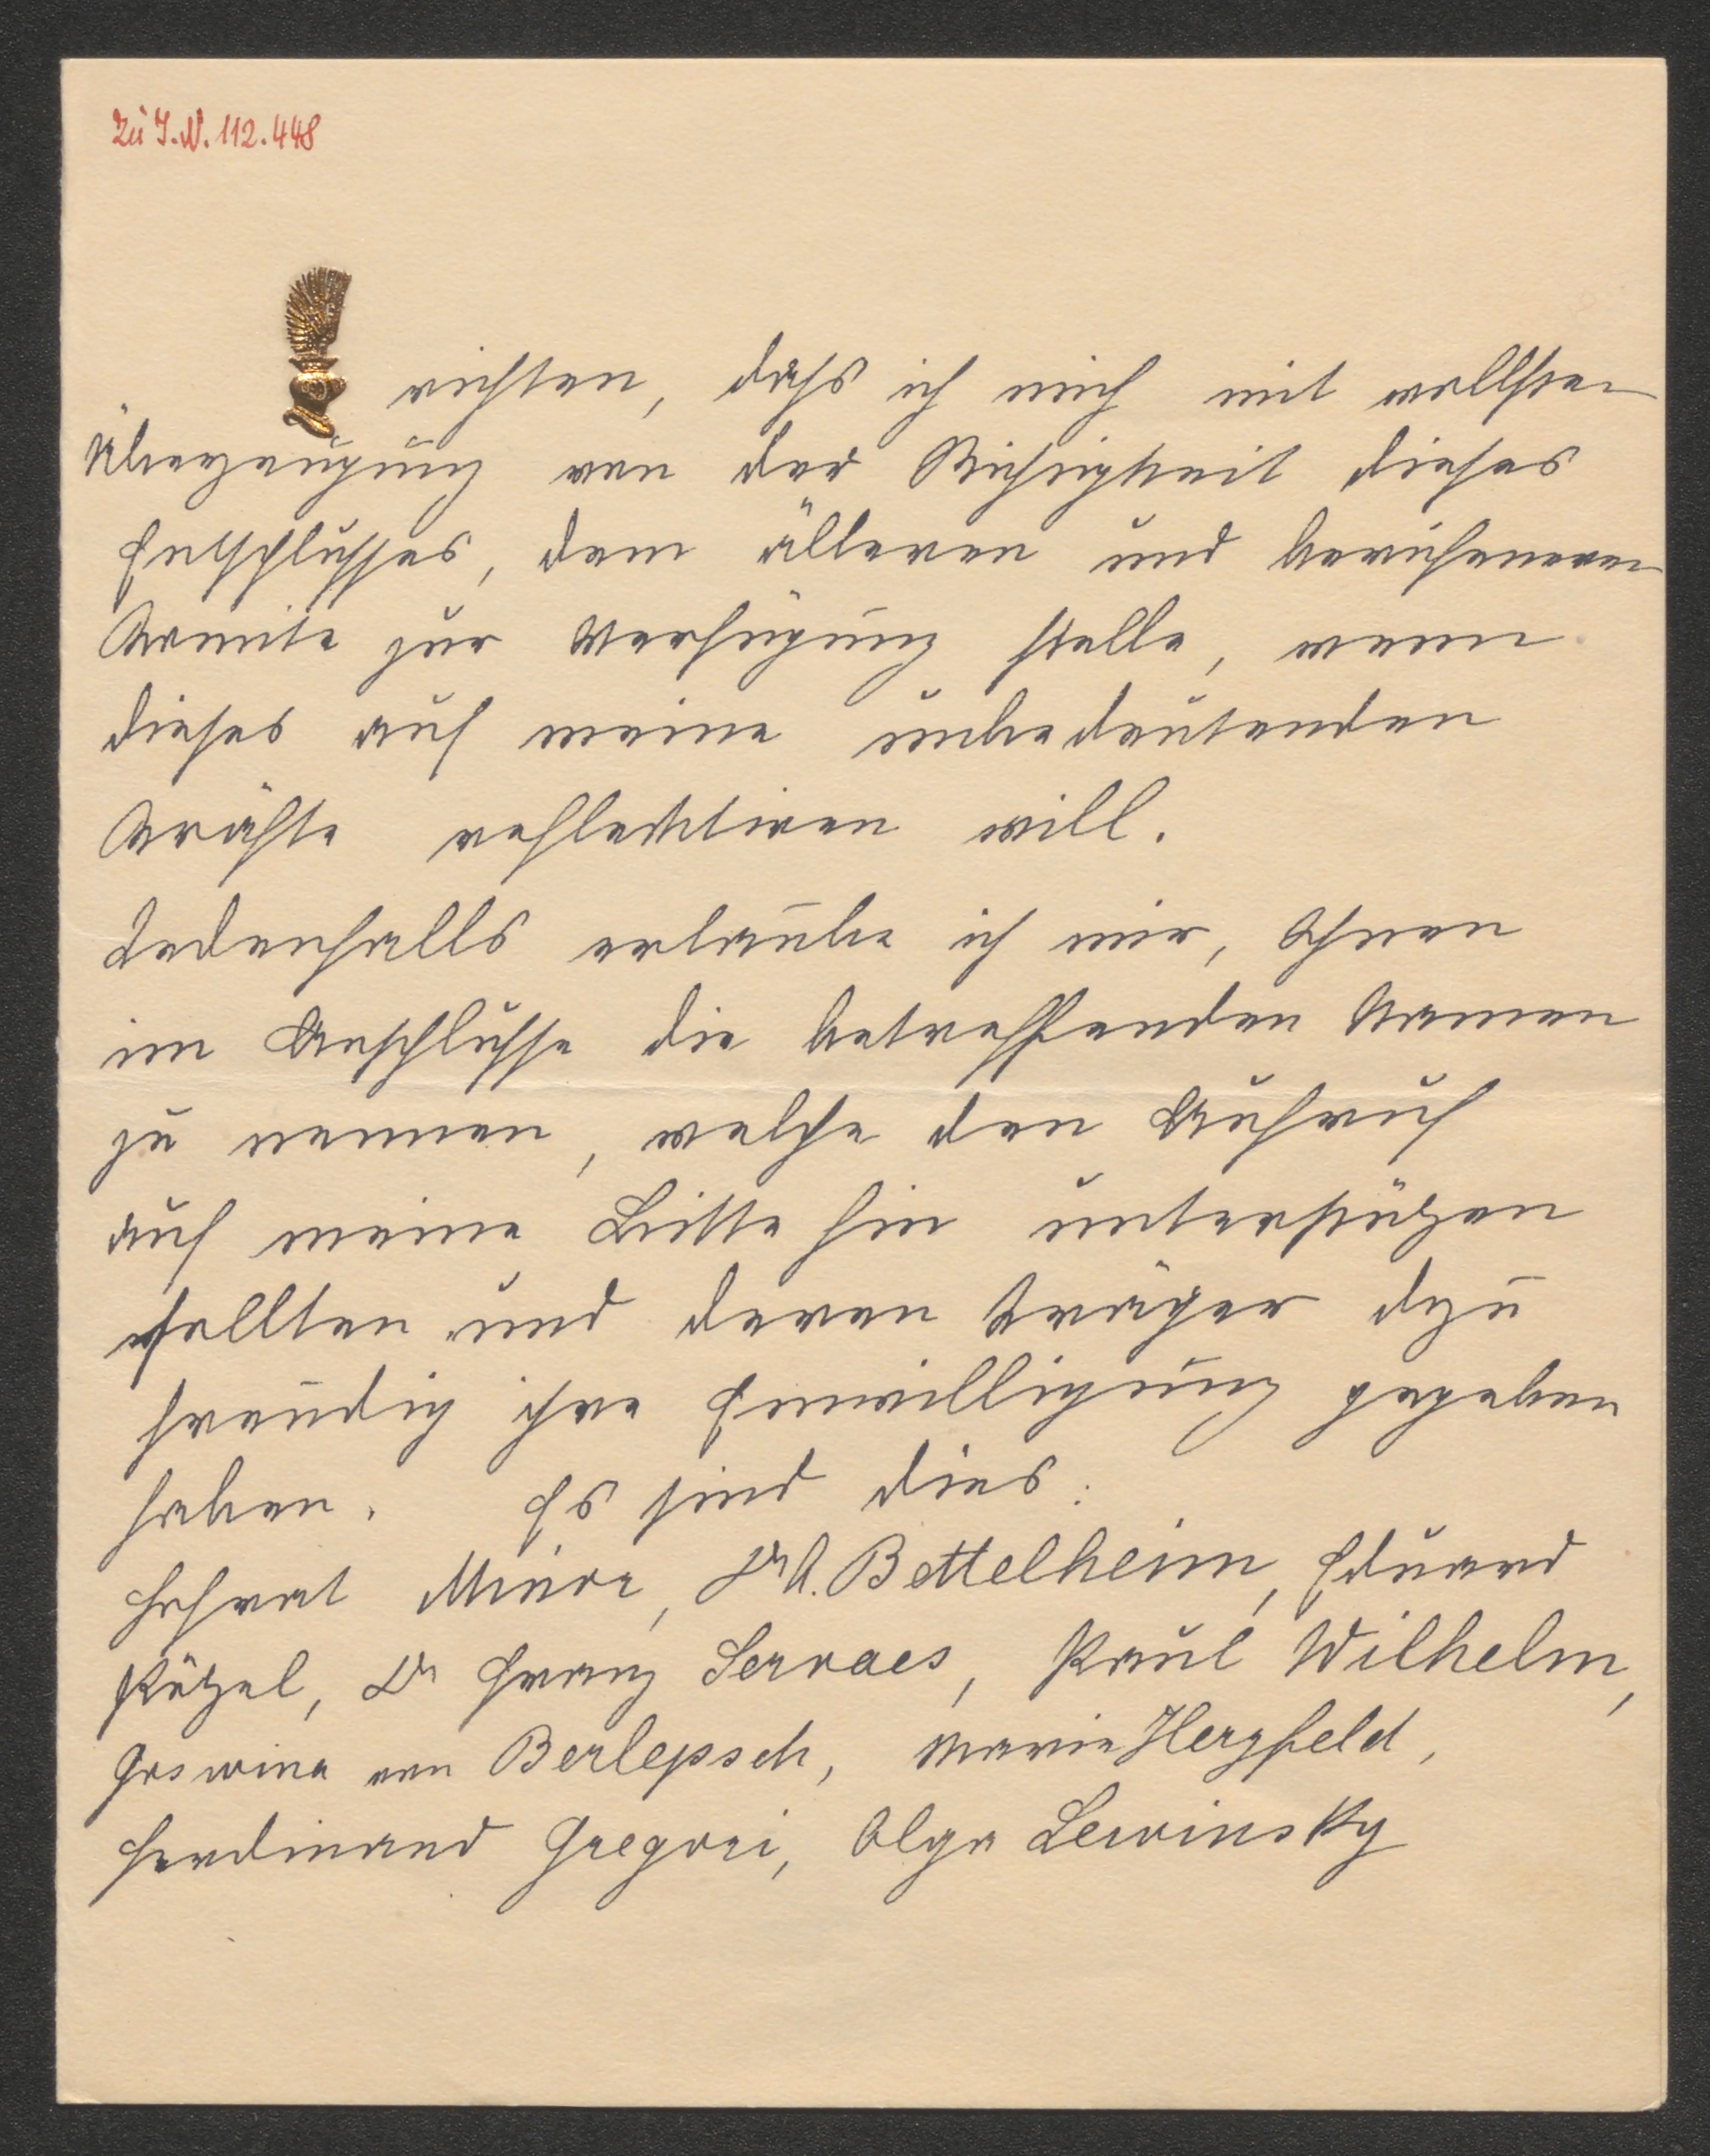 Zu I.N. 112.448
richten, dass ich mich mit vollster
Überzeugung von der Richtigkeit dieses
Entschlusses, dem älteren und berufeneren
Komite zur Verfügung stelle, wenn
dieses auf meine unbedeutenden
Kräfte reflektiren will.
Jedenfalls erlaube ich mir, Ihnen
im Anschlusse die betreffenden Namen
zu nennen, welche den Aufruf
auf meine Bitte hin unterstützen
sollten und deren Träger dazu
freudig ihre Einwilligung gegeben
haben. Es sind dies:
Hofrat Minor, Dr A. Bettelheim, Eduard
Pötzl, Dr Franz Servaes, Paul Wilhelm,
Goswina von Berlepsch, Marie Herzfeld,
Ferdinand Gregori, Olga Lewinsky